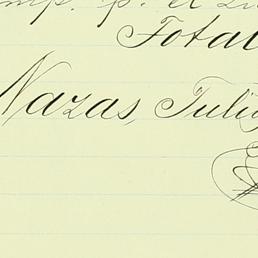 imp. p. el
Total
Nazas, Julio